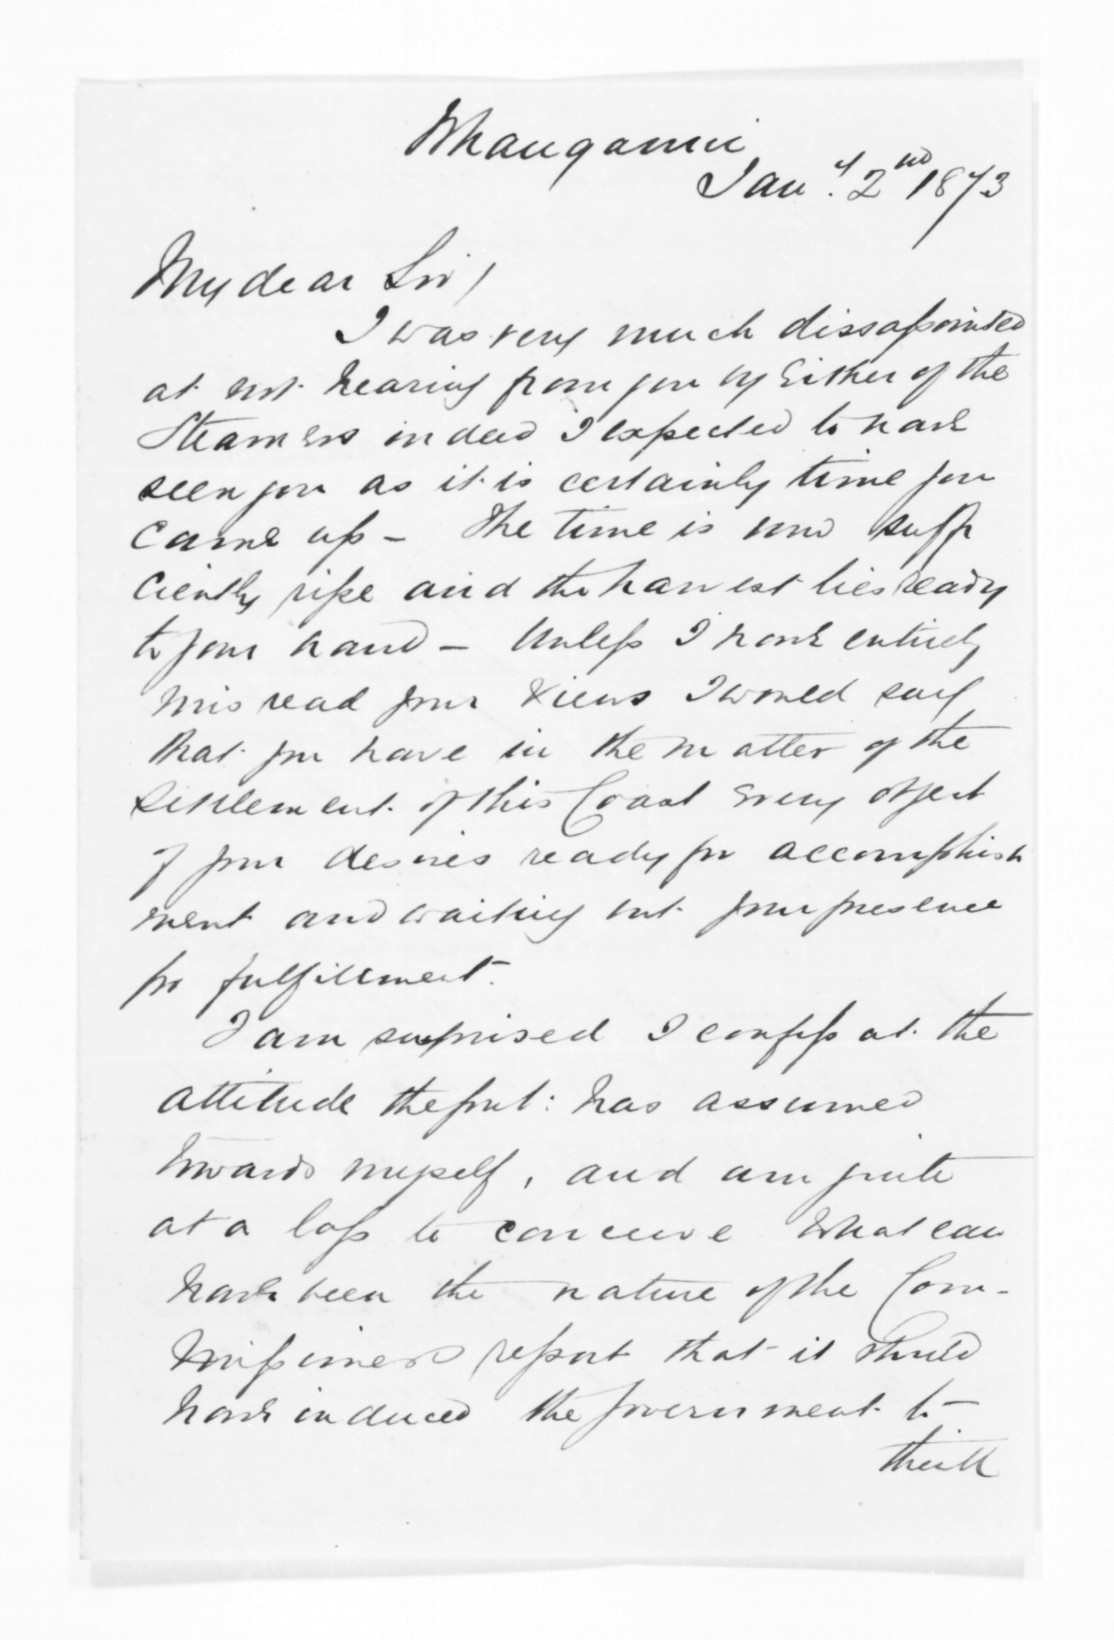 Whanganui
Jany. 2nd 1873
My dear Sir/
I was very much dissapointed
at not hearing from you by Either of the
Steamers indeed I expected to have
seen you as it is certainly time you
came up – The time is now suffi
ciently ripe and the harvest lies ready
to your hand – Unless I have entirely
misread your Views I would say
that you have in the matter of the
Settlement of this Coast Every object
of your desires ready for accomplish
ment and waiting but your presence
for fulfillment.
I am surprised I confess at the
attitude the Govt: has assumed
towards myself, and am quite
at a loss to conceive what can
have been the nature of the Com-
missioners report that it should
have induced the Government to
think